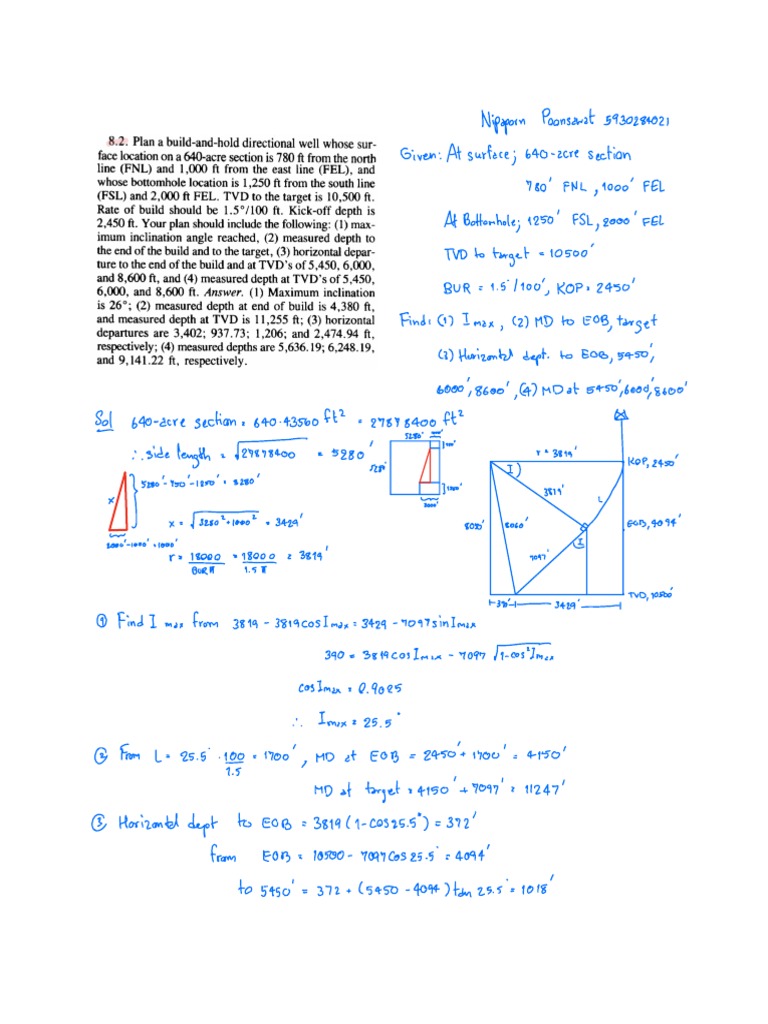 Nipaporn Poonsawat 5930284021
8.2. Plan a build-and-hold directional well whose sur-
face location on a 640-acre section is 780 ft from the north
line (FNL) and 1,000 ft from the east line (FEL), and
whose bottomhole location is 1,250 ft from the south line
(FSL) and 2,000 ft FEL. TVD to the target is 10,500 ft.
Rate of build should be 1.5°/100 ft. Kick-off depth is
2,450 ft. Your plan should include the following: (1) max-
imum inclination angle reached, (2) measured depth to
the end of the build and to the target, (3) horizontal depar-
ture to the end of the build and at TVD's of 5,450, 6,000,
and 8,600 ft, and (4) measured depth at TVD's of 5,450,
6,000, and 8,600 ft. Answer. (1) Maximum inclination
is 26°; (2) measured depth at end of build is 4,380 ft,
and measured depth at TVD is 11,255 ft; (3) horizontal
departures are 3,402; 937.73; 1,206; and 2,474.94 ft,
respectively; (4) measured depths are 5,636.19; 6,248.19,
and 9,141.22 ft, respectively.
Given: At surface; 640-acre section
780' FNL, 1000' FEL
At Bottomhole; 1250' FSL, 2000' FEL
TVD to target = 10500'
BUR = 1.5°/100', KOP = 2450'
Find: (1) I max, (2) MD to EOB, target
(3) Horizontal dept. to EOB, 5450',
6000', 8600', (4) MD at 5450', 6000', 8600'
Sol 640-acre section = 640·43560 ft² = 27878400 ft²
∴ side length = √27878400 = 5280'
5280'
5280'
2000'
5280'-750'-1250' = 3280'
x
2000'-1000' = 1000'
x = √3280²+1000² = 3429'
r = 18000/BUR π = 18000/1.5 π = 3819'
r = 3819'
KOP, 2450'
I
3819'
L
8050'
8060'
EOB, 4094'
I
7097'
TVD, 10500'
390'
3429'
① Find I max from 3819 - 3819cosImax = 3429 - 7097sinImax
390 = 3819cosImax - 7097 √1-cos²Imax
cosImax = 0.9025
∴ Imax = 25.5°
② From L = 25.5° · 100/1.5 = 1700', MD at EOB = 2450' + 1700' = 4150'
MD at target = 4150' + 7097' = 11247'
③ Horizontal dept to EOB = 3819(1-cos25.5°) = 372'
from EOB = 10500 - 7097cos25.5° = 4094'
to 5450' = 372 + (5450 - 4094) tan 25.5° = 1018'